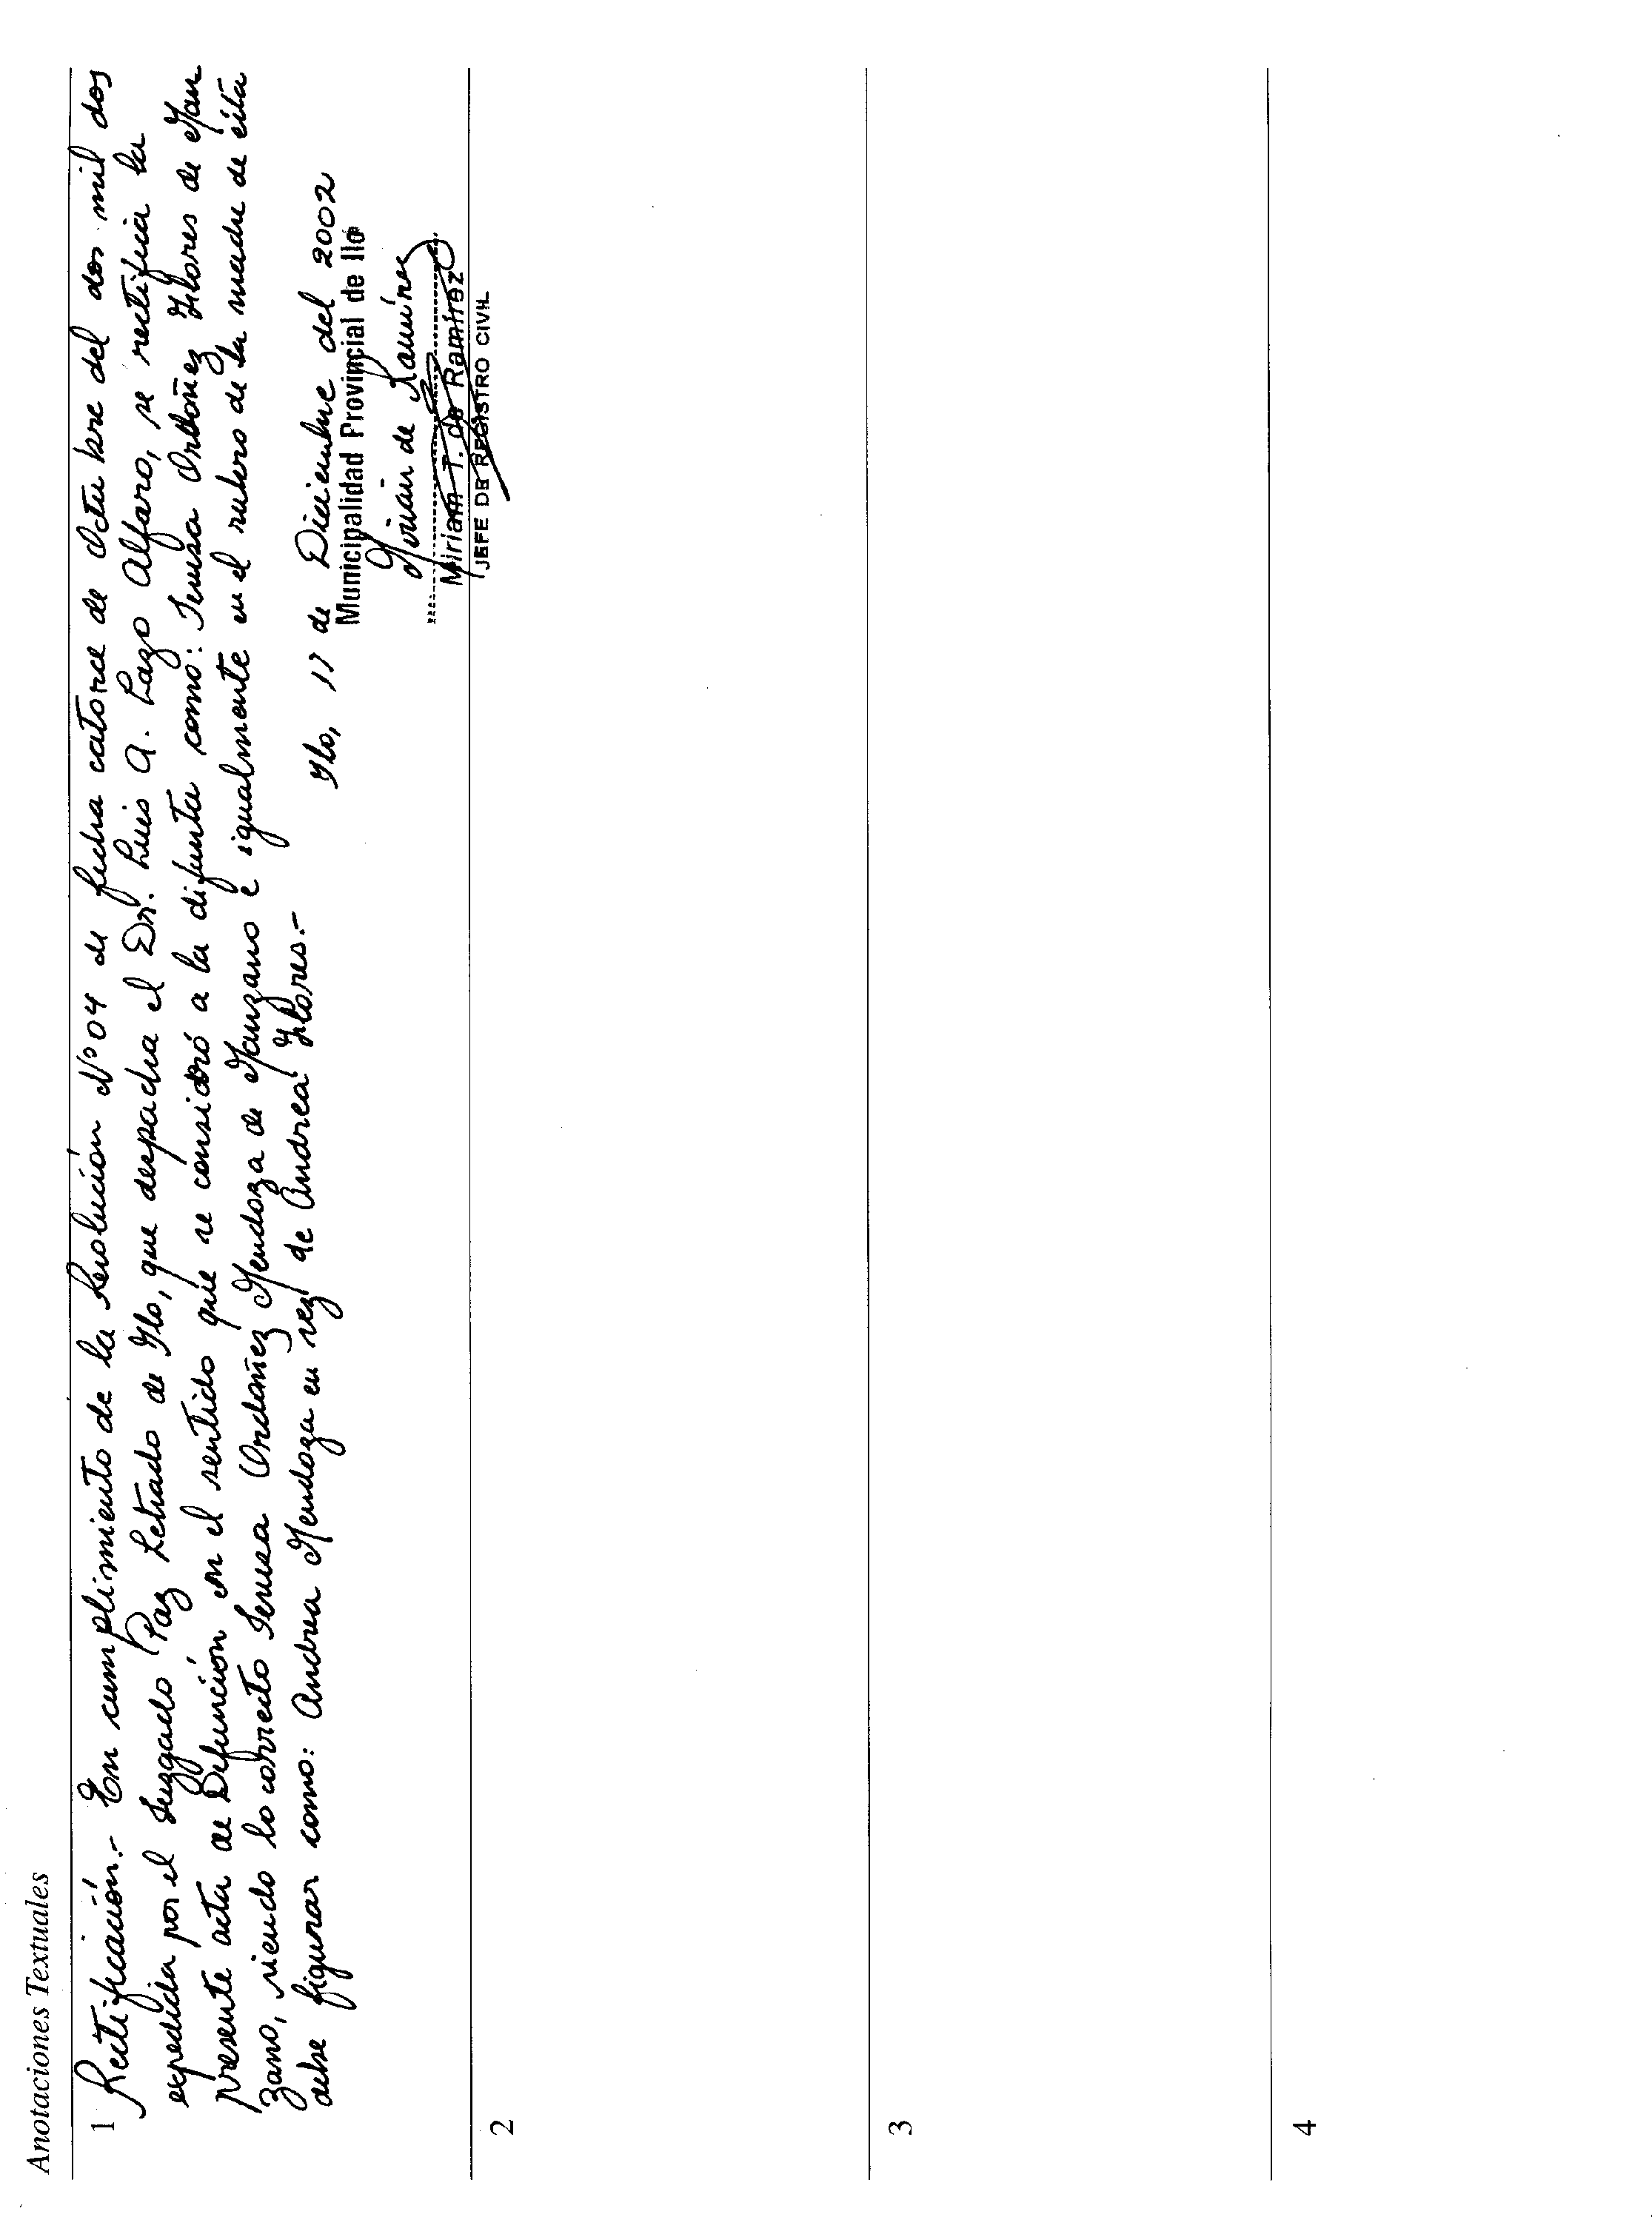 Anotaciones Textuales
1 Rectificación.- En cumplimiento de la Resolución N° 04 de fecha catorce de Octubre del dos mil dos
expedida por el Juzgado Paz Letrado de Ilo, que despacha el Dr. Luis A. Lazo Alfaro, se rectifica la
presente acta de Defunción en el sentido que se considró a la difunta como: Teresa Ordoñez Flores de Man
zano, siendo lo correcto Teresa Ordoñez Mendoza de Manzano e igualmente en el rubro de la madre de ésta
debe figurar como: Andrea Mendoza en vez de Andrea Flores.-
Ilo, 11 de Diciembre del 2002
Municipalidad Provincial de Ilo
Miriam de Ramírez
Miriam T. de Ramírez
JEFE DE REGISTRO CIVIL
2
3
4